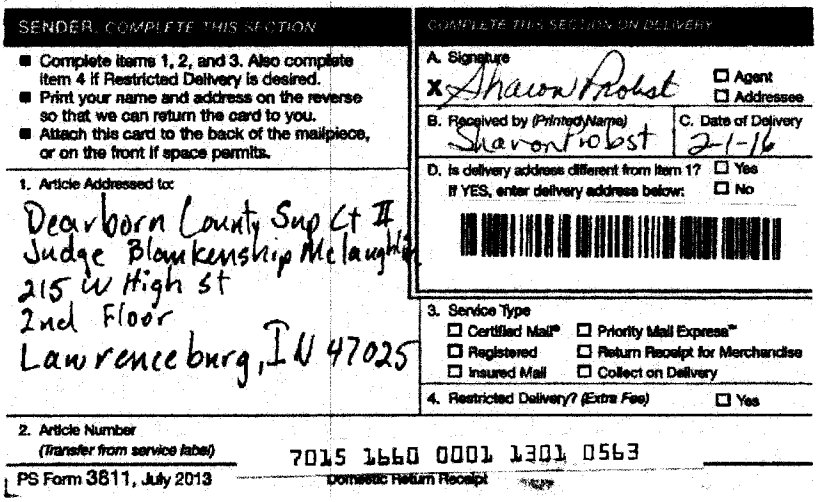 SENDER: COMPLETE THIS SECTION
■ Complete items 1, 2, and 3. Also complete
item 4 if Restricted Delivery is desired.
■ Print your name and address on the reverse
so that we can return the card to you.
■ Attach this card to the back of the mailpiece,
or on the front if space permits.
1. Article Addressed to:
Dearborn County Sup Ct II
Judge Blankenship Mclaughlin
215 W High St
2nd Floor
Lawrenceburg, IN 47025
2. Article Number
(Transfer from service label)
7015 1660 0001 1301 0563
COMPLETE THIS SECTION ON DELIVERY
A. Signature
X Sharon Probst
☐ Agent
☐ Addressee
B. Received by (Printed Name)
Sharon Probst
C. Date of Delivery
2-1-16
D. Is delivery address different from item 1? ☐ Yes
If YES, enter delivery address below: ☐ No
3. Service Type
☐ Certified Mail® ☐ Priority Mail Express™
☐ Registered ☐ Return Receipt for Merchandise
☐ Insured Mail ☐ Collect on Delivery
4. Restricted Delivery? (Extra Fee) ☐ Yes
PS Form 3811, July 2013 Domestic Return Receipt